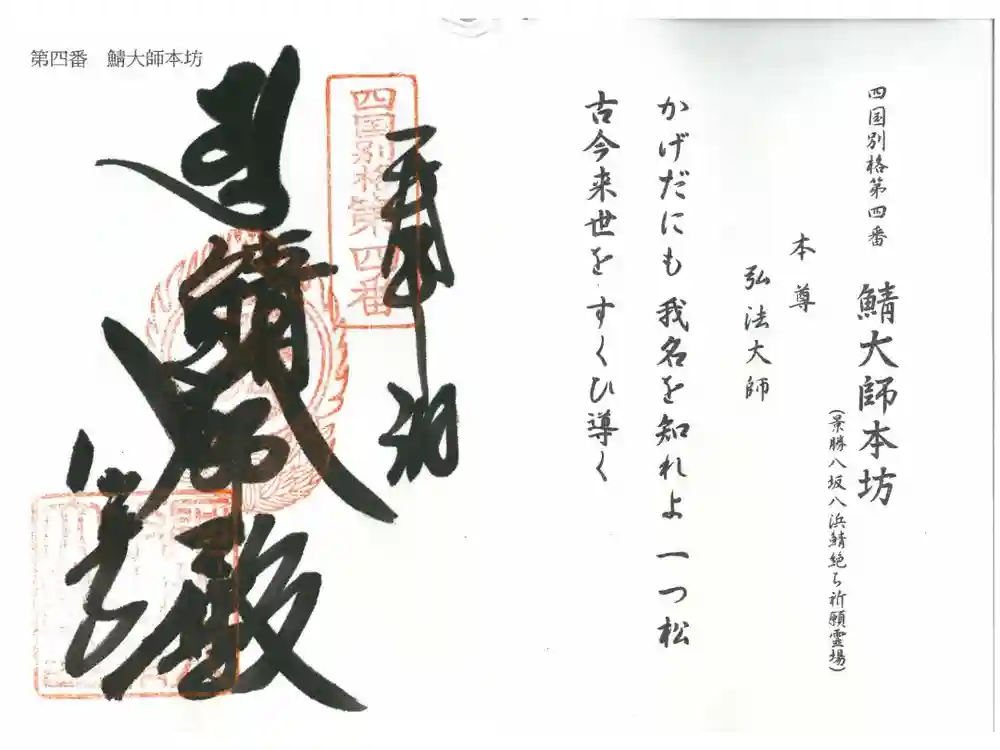 四国別格第四番
鯖大師本坊
(景勝八坂八浜鯖絶ち祈願霊場)
本尊
弘法大師
かげだにも 我名を知れよ 一つ松
古今来世を すくひ導く
第四番　鯖大師本坊
四国別格第四番
奉納
鯖大師